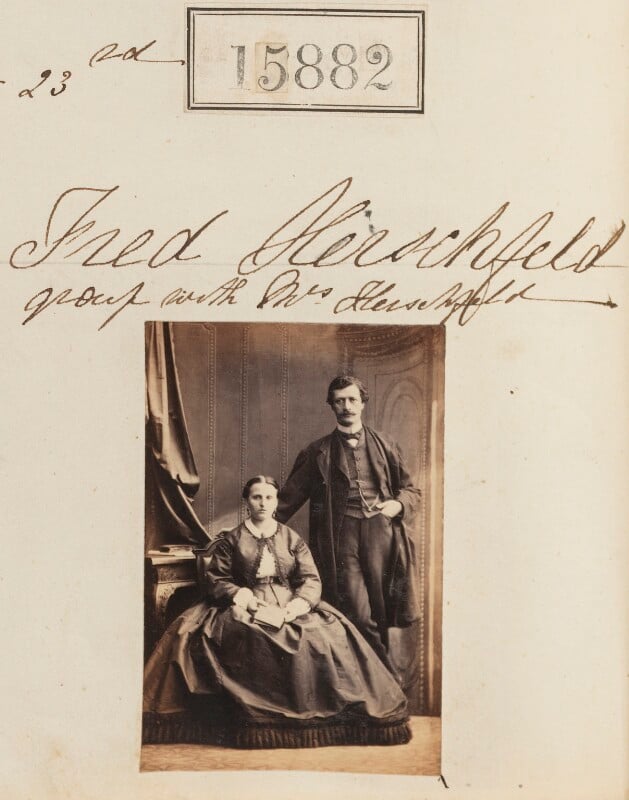 23rd
15882
Fred Herschfeld
group with Mrs Herschfeld